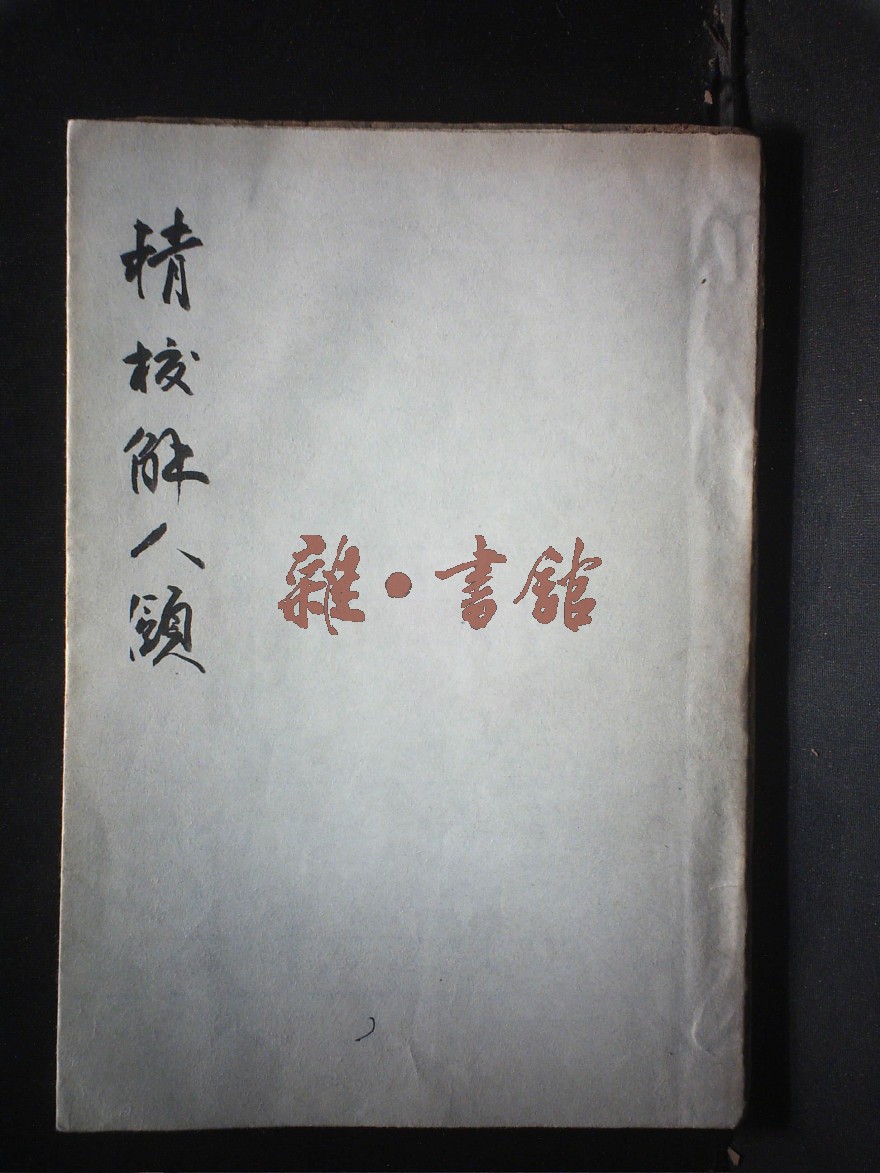 精校解人頤
雜·書館